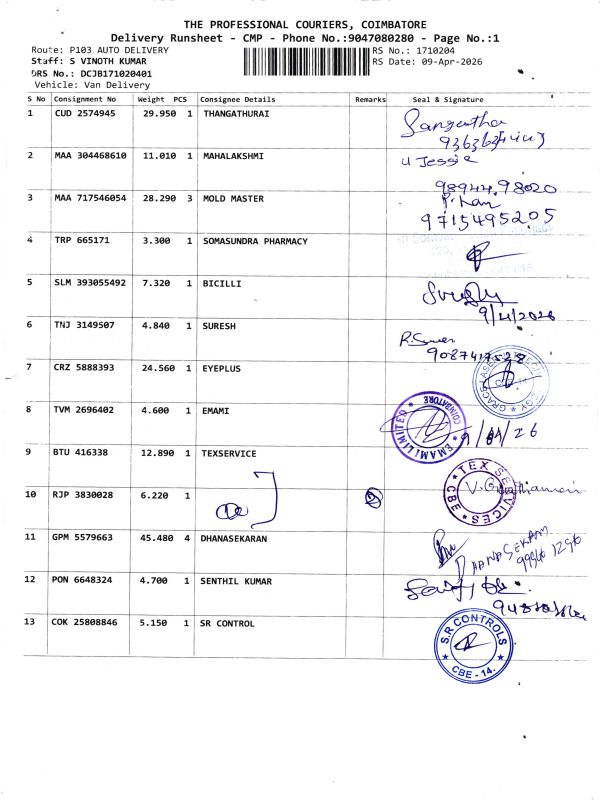 THE PROFESSIONAL COURIERS, COIMBATORE
Delivery Runsheet - CMP - Phone No.:9047080280 - Page No.:1
Route: P103 AUTO DELIVERY
RS No.: 1710204
Staff: S VINOTH KUMAR
RS Date: 09-Apr-2026
DRS No.: DCJB171020401
Vehicle: Van Delivery
S No Consignment No Weight PCS Consignee Details Remarks Seal & Signature
1 CUD 2574945 29.950 1 THANGATHURAI
2 MAA 304468610 11.010 1 MAHALAKSHMI U Jessie
98944 98020
3 MAA 717546054 28.290 3 MOLD MASTER
9715495205
4 TRP 665171 3.300 1 SOMASUNDRA PHARMACY
5 SLM 393055492 7.320 1 BICILLI
9/4/2026
6 TNJ 3149507 4.840 1 SURESH
7 CRZ 5888393 24.560 1 EYEPLUS
8 TVM 2696402 4.600 1 EMAMI EMAMI LIMITED COIMBATORE
9/04/26
9 BTU 416338 12.890 1 TEXSERVICE TEX SERVICES CBE
10 RJP 3830028 6.220 1
11 GPM 5579663 45.480 4 DHANASEKARAN DHANASEKARAN
12 PON 6648324 4.700 1 SENTHIL KUMAR
13 COK 25808846 5.150 1 SR CONTROL S.R CONTROLS CBE - 14.